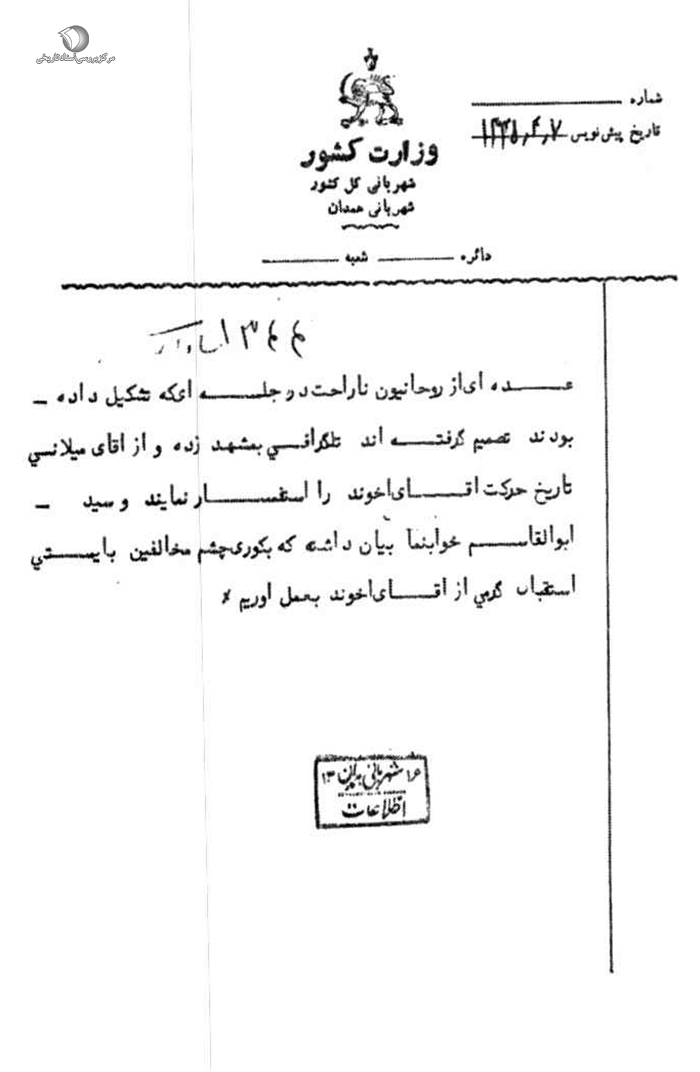 مرکز بررسی اسناد تاریخی
شماره
تاریخ پیش‌نویس ۱۳۴۵,۴,۷
وزارت کشور
شهربانی کل کشور
شهربانی همدان
دائره شعبه
عـده ای‌از روحانیون ناراحت در جلسـه ای‌که تشکیل داده ـ
بودند تصمیم گرفتـه اند تلگرافـي بمشهد زده و از اقای میلانـي
تاریخ حرکت اقـای‌اخوند را استفسـار نمایند و سید ـ
ابوالقاسـم خوابنما بیان داشته که بکوری چشم مخالفین بایستـي
استقبال گرمي از اقـای‌اخوند بعمل اوریم *
شهربانی همدان
اطلاعات